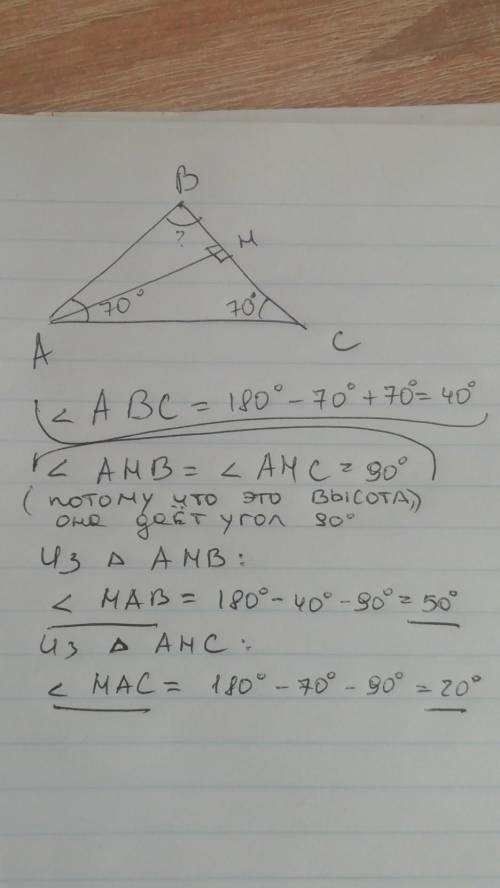 B
?
M
70°
70°
A
C
∠ ABC = 180° - 70° + 70° = 40°
∠ AMB = ∠ AMC = 90°
(потому что это ВЫСОТА,)
она даёт угол 90°
Из △ AMB:
∠ MAB = 180° - 40° - 90° = 50°
Из △ AMC:
∠ MAC = 180° - 70° - 90° = 20°